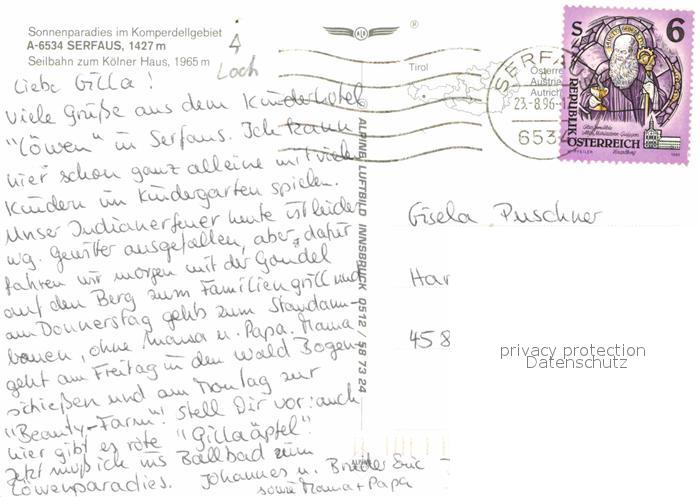 Sonnenparadies im Komperdellgebiet
A-6534 SERFAUS, 1427 m
Seilbahn zum Kölner Haus, 1965 m
4
Loch
Liebe Gilla!
Viele Grüße aus dem Kinderhotel
"Löwen" in Serfaus. Ich kann
hier schon ganz alleine mit vielen
Kindern im Kindergarten spielen.
Unser Indianerfeuer heute ist leider
wg. Gewitter ausgefallen, aber dafür
fahren wir morgen mit der Gondel
auf den Berg zum Familiengrill und
am Donnerstag gehts zum Staudamm-
bauen, ohne Mama u. Papa. Mama
geht am Freitag in den Wald Bogen-
schießen und am Montag zur
"Beauty-Farm"! Stell Dir vor: auch
hier gibt es rote "Gillaäpfel".
Jetzt muß ich ins Ballbad zum
Löwenparadies. Johannes u. Bruder Eric
sowie Mama + Papa
ALPINE LUFTBILD INNSBRUCK 0512 / 58 73 24
ALPINE
®
Tirol
Österre
Austrie
Autrich
SERFAUS
23.-8.96-1
653
S 6
REPUBLIK
ÖSTERREICH
Gisela Puschner
Har
458
privacy protection
Datenschutz